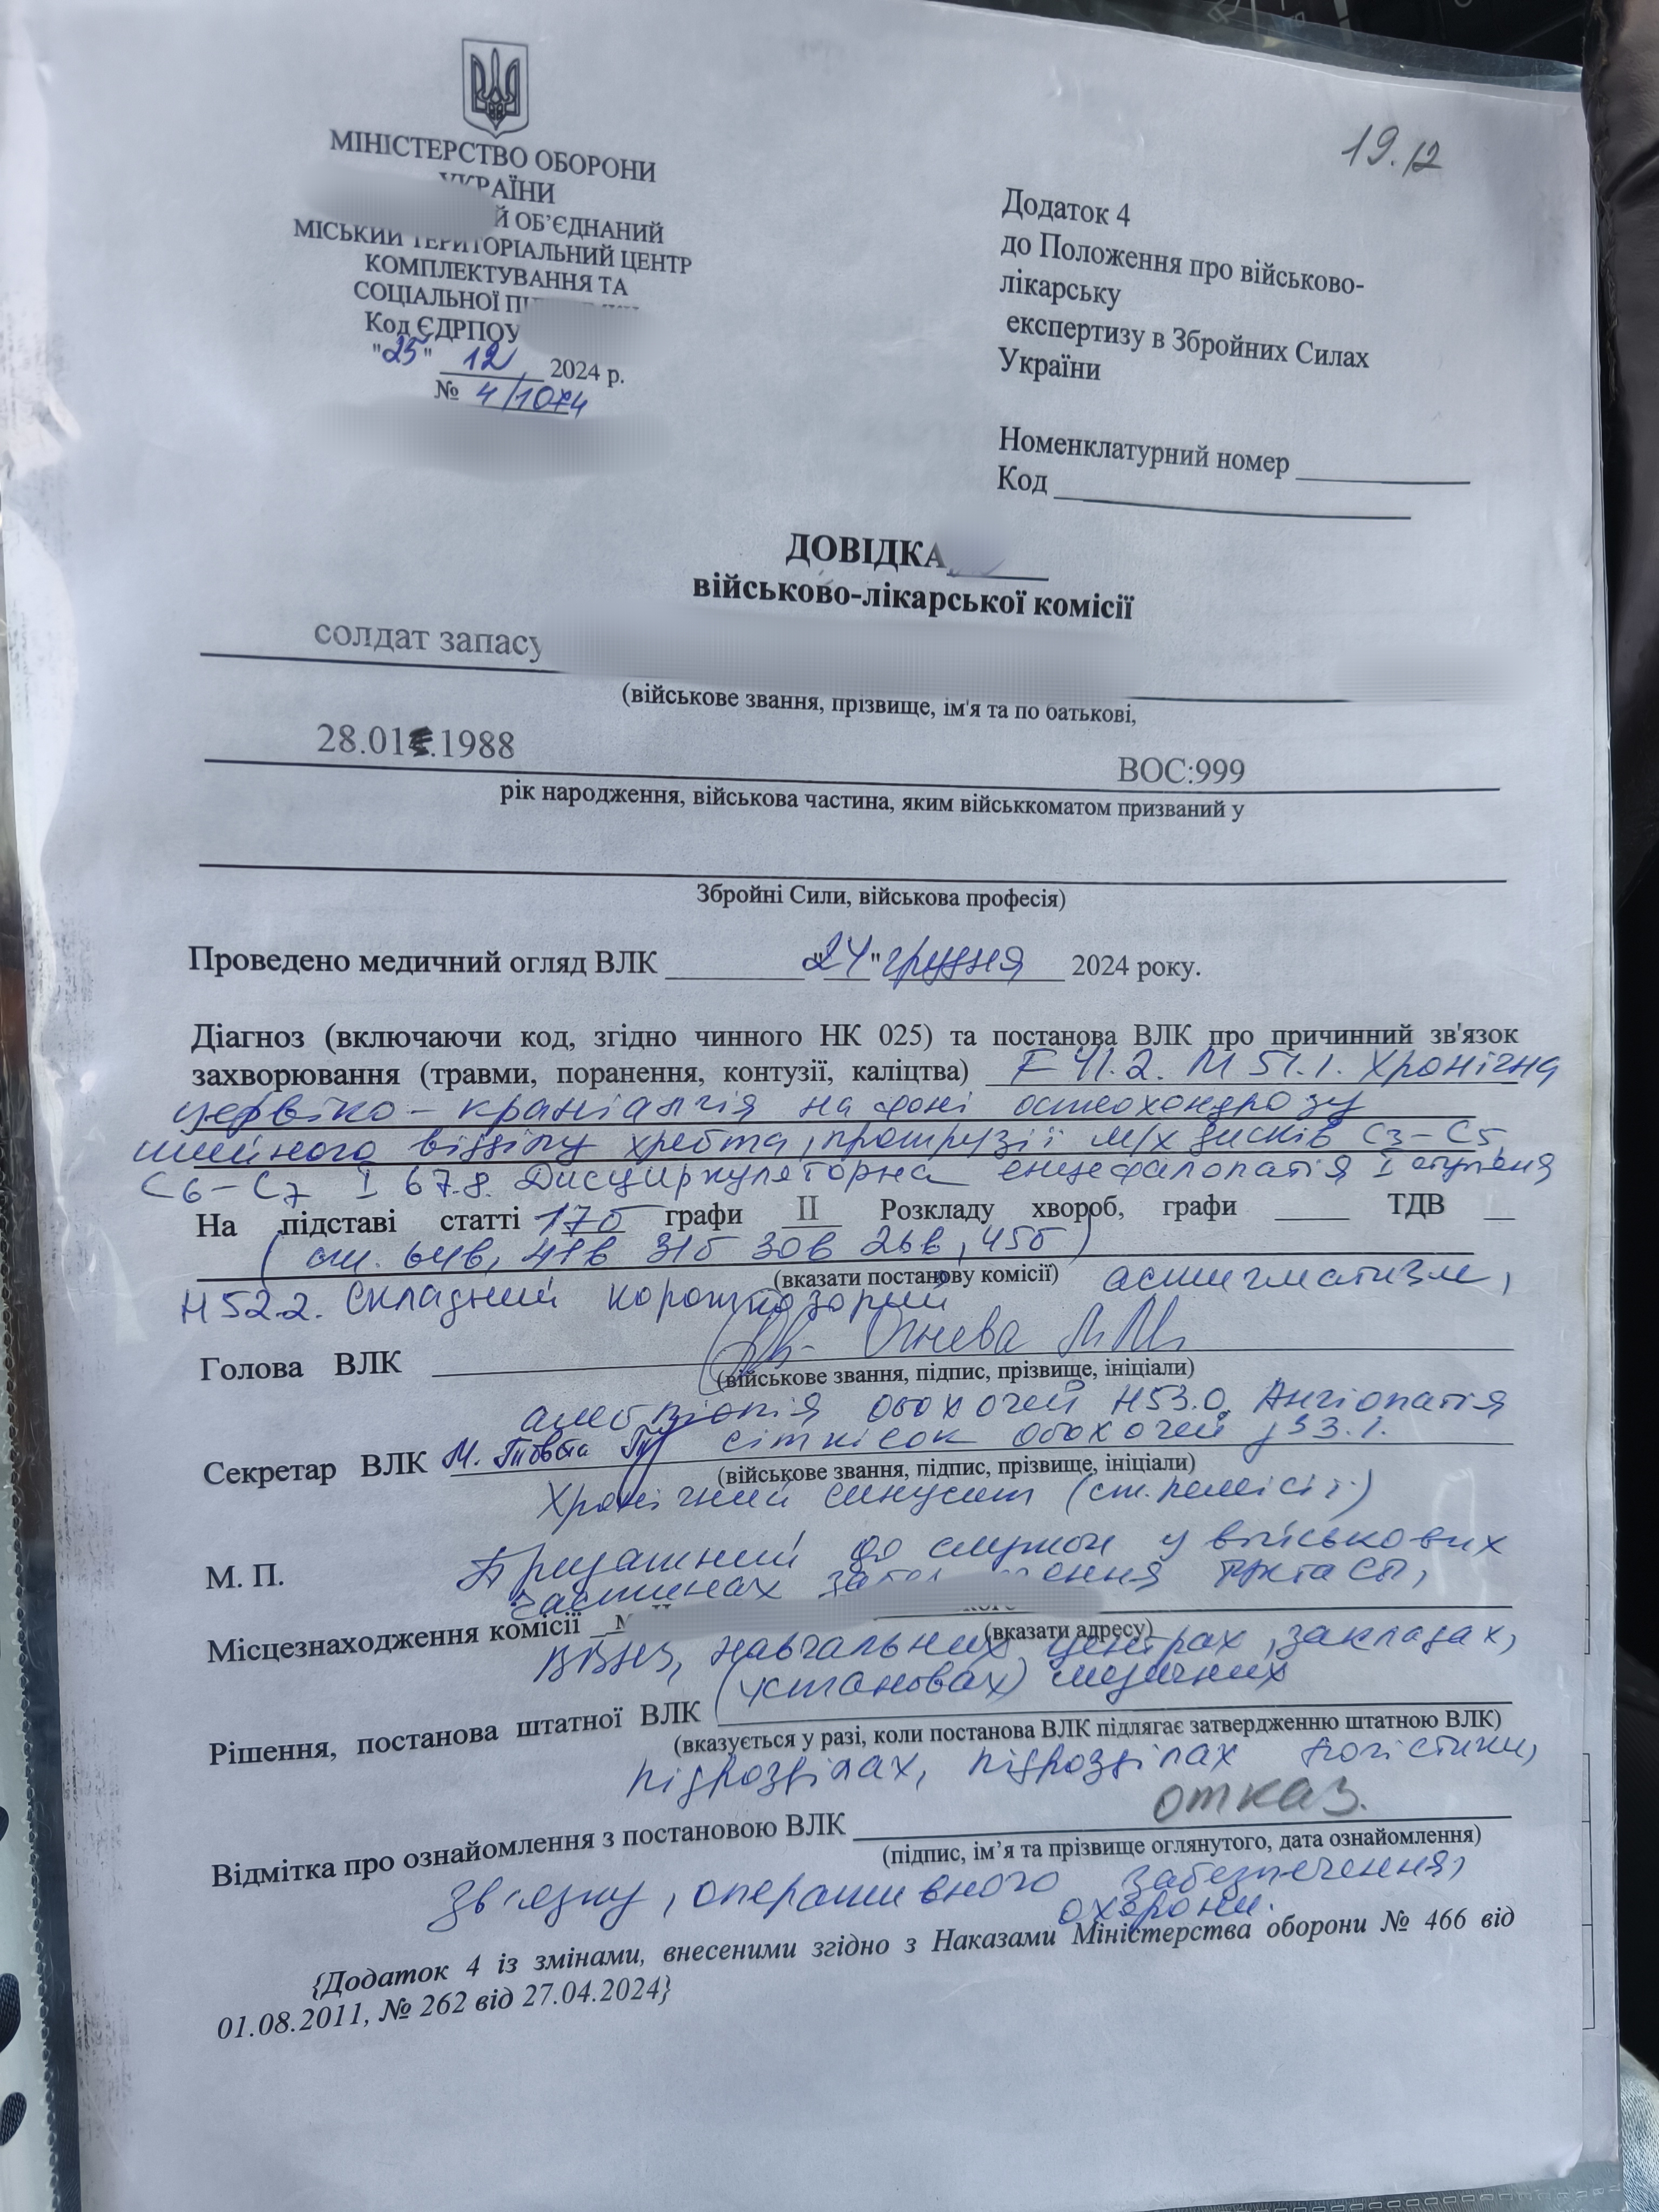 19.12
МІНІСТЕРСТВО ОБОРОНИ
УКРАЇНИ
Й ОБ’ЄДНАНИЙ
МІСЬКИЙ ТЕРИТОРІАЛЬНИЙ ЦЕНТР
КОМПЛЕКТУВАННЯ ТА
СОЦІАЛЬНОЇ
Код ЄДРПОУ
"25" 12 2024 р.
№ 4/1074
Додаток 4
до Положення про військово-
лікарську
експертизу в Збройних Силах
України
Номенклатурний номер
Код
ДОВІДКА
військово-лікарської комісії
солдат запасу
(військове звання, прізвище, ім'я та по батькові,
28.01.1988 ВОС:999
рік народження, військова частина, яким військкоматом призваний у
Збройні Сили, військова професія)
Проведено медичний огляд ВЛК "24" грудня 2024 року.
Діагноз (включаючи код, згідно чинного НК 025) та постанова ВЛК про причинний зв'язок
захворювання (травми, поранення, контузії, каліцтва) F 41.2. M 51.1. Хронічна
цервіко-краніалгія на фоні остеохондрозу
шийного відділу хребта, протрузії м/х дисків С3-С5,
С6-С7 І 67.8. Дисциркуляторна енцефалопатія І ступеня
На підставі статті 17б графи II Розкладу хвороб, графи ТДВ
(ст. 64в, 31б 30в 26в, 45б)
(вказати постанову комісії) астигматизм,
Н 52.2. Складний короткозорий
Голова ВЛК
(військове звання, підпис, прізвище, ініціали)
амбліопія обох очей Н53.0. Ангіопатія
Секретар ВЛК сітківок обох очей
(військове звання, підпис, прізвище, ініціали)
Хронічний синусит (ст. ремісії)
М. П. Придатний до служби у військових
частинах забезпечення ТЦКтаСП,
Місцезнаходження комісії
(вказати адресу)
ВВНЗ, навчальних центрах, закладах,
(установах) медичних
Рішення, постанова штатної ВЛК
(вказується у разі, коли постанова ВЛК підлягає затвердженню штатною ВЛК)
підрозділах, підрозділах логістики,
отказ.
Відмітка про ознайомлення з постановою ВЛК
(підпис, ім’я та прізвище оглянутого, дата ознайомлення)
зв'язку, оперативного забезпечення,
охорони.
{Додаток 4 із змінами, внесеними згідно з Наказами Міністерства оборони № 466 від
01.08.2011, № 262 від 27.04.2024}